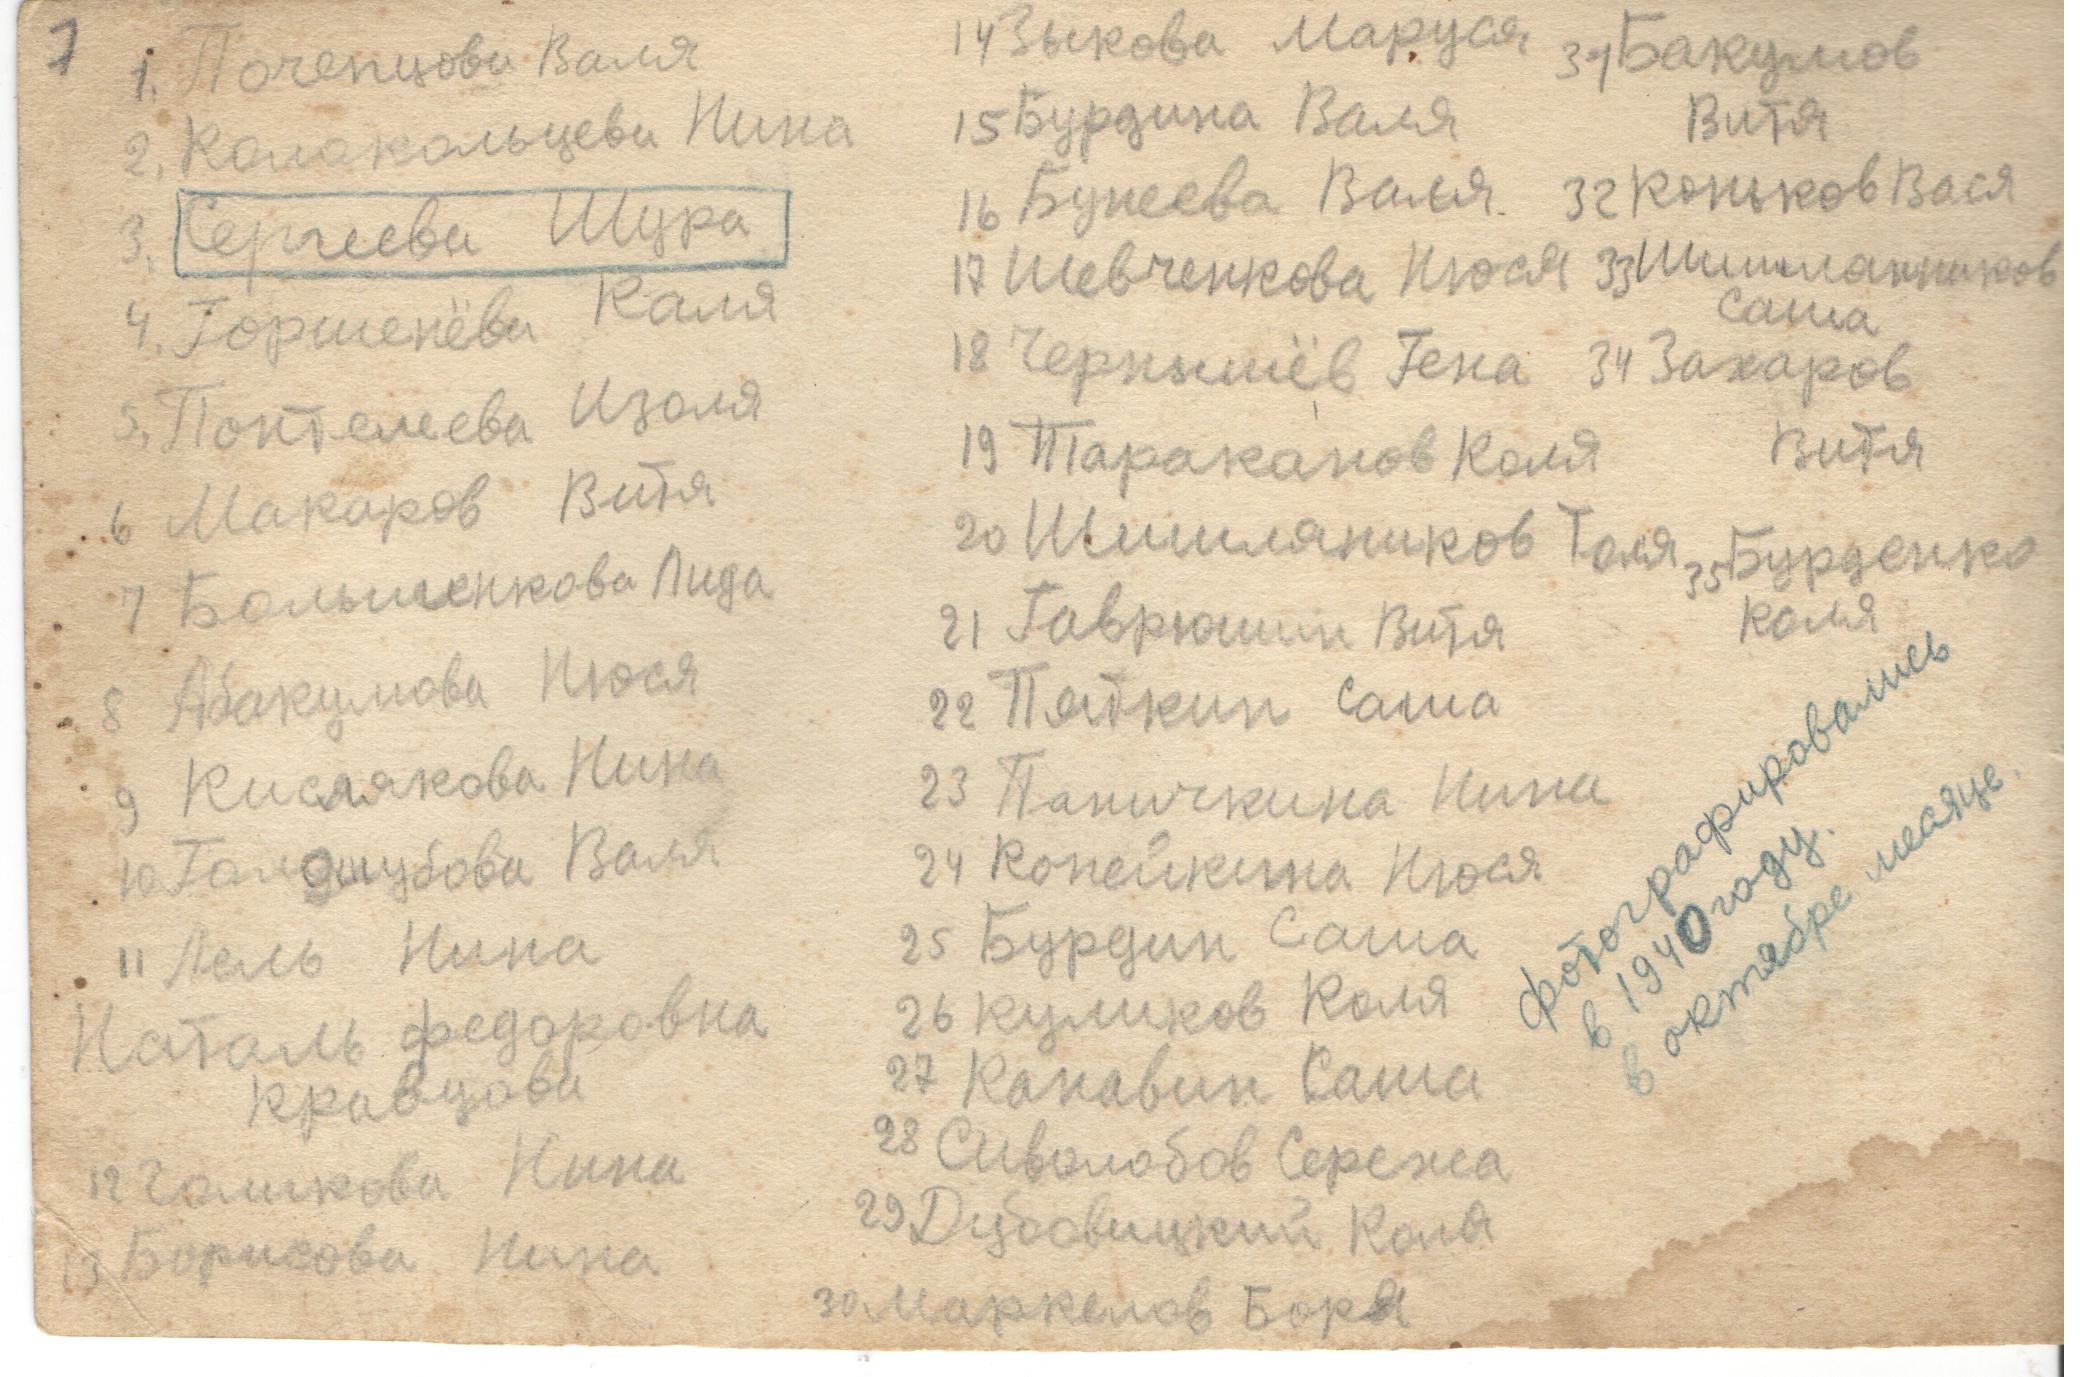 1
1. Почепцова Валя
2. Колокольцева Нина
3. Сергеева Шура
4. Горшенёва Каля
5. Понтелеева Изоля
6 Макаров Витя
7 Большенкова Лида
8 Абакумова Нюся
9 Кислякова Нина
10 Валя
11 Лель Нина
Наталь Федоровна
Кравцова
12 Чаликова Нина
13 Борисова Нина
14 Зыкова Маруся
15 Бурдина Валя
16 Бунеева Валя
17 Шевченкова Нюся
18 Чернышёв Гена
19 Тараканов Коля
20 Шишляников Толя
21 Гаврюшин Витя
22 Пяткин Саша
23 Паничкина Нина
24 Копейкина Нюся
25 Бурдин Саша
26 Куликов Коля
27 Канавин Саша
28 Сиволобов Сережа
29 Дубовицкий Коля
30 Маркелов Боря
31 Бакумов
Витя
32 Коньков Вася
33 Шишлянников
Саша
34 Захаров
Витя
35 Бурденко
Коля
Фотографировались
в 1940 году.
в октябре месяце.